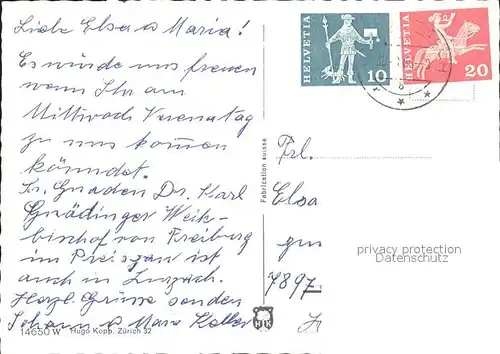 Liebe Elsa u Maria!
Es würde uns freuen
wenn Ihr am
Mittwoch Verenatag
zu uns kommen
könndet.
Sr. Gnaden Dr. Karl
Gnädinger Weih-
bischof von Freiburg
im Preisgau ist
auch in Zurzach.
Herzl Grüsse senden
Johann u Marie Keller
HELVETIA 10
HELVETIA 20
Frl.
Elsa
7897
privacy protection
Datenschutz
Fabrication suisse
14650 W Hugo Kopp, Zürich 52
HK